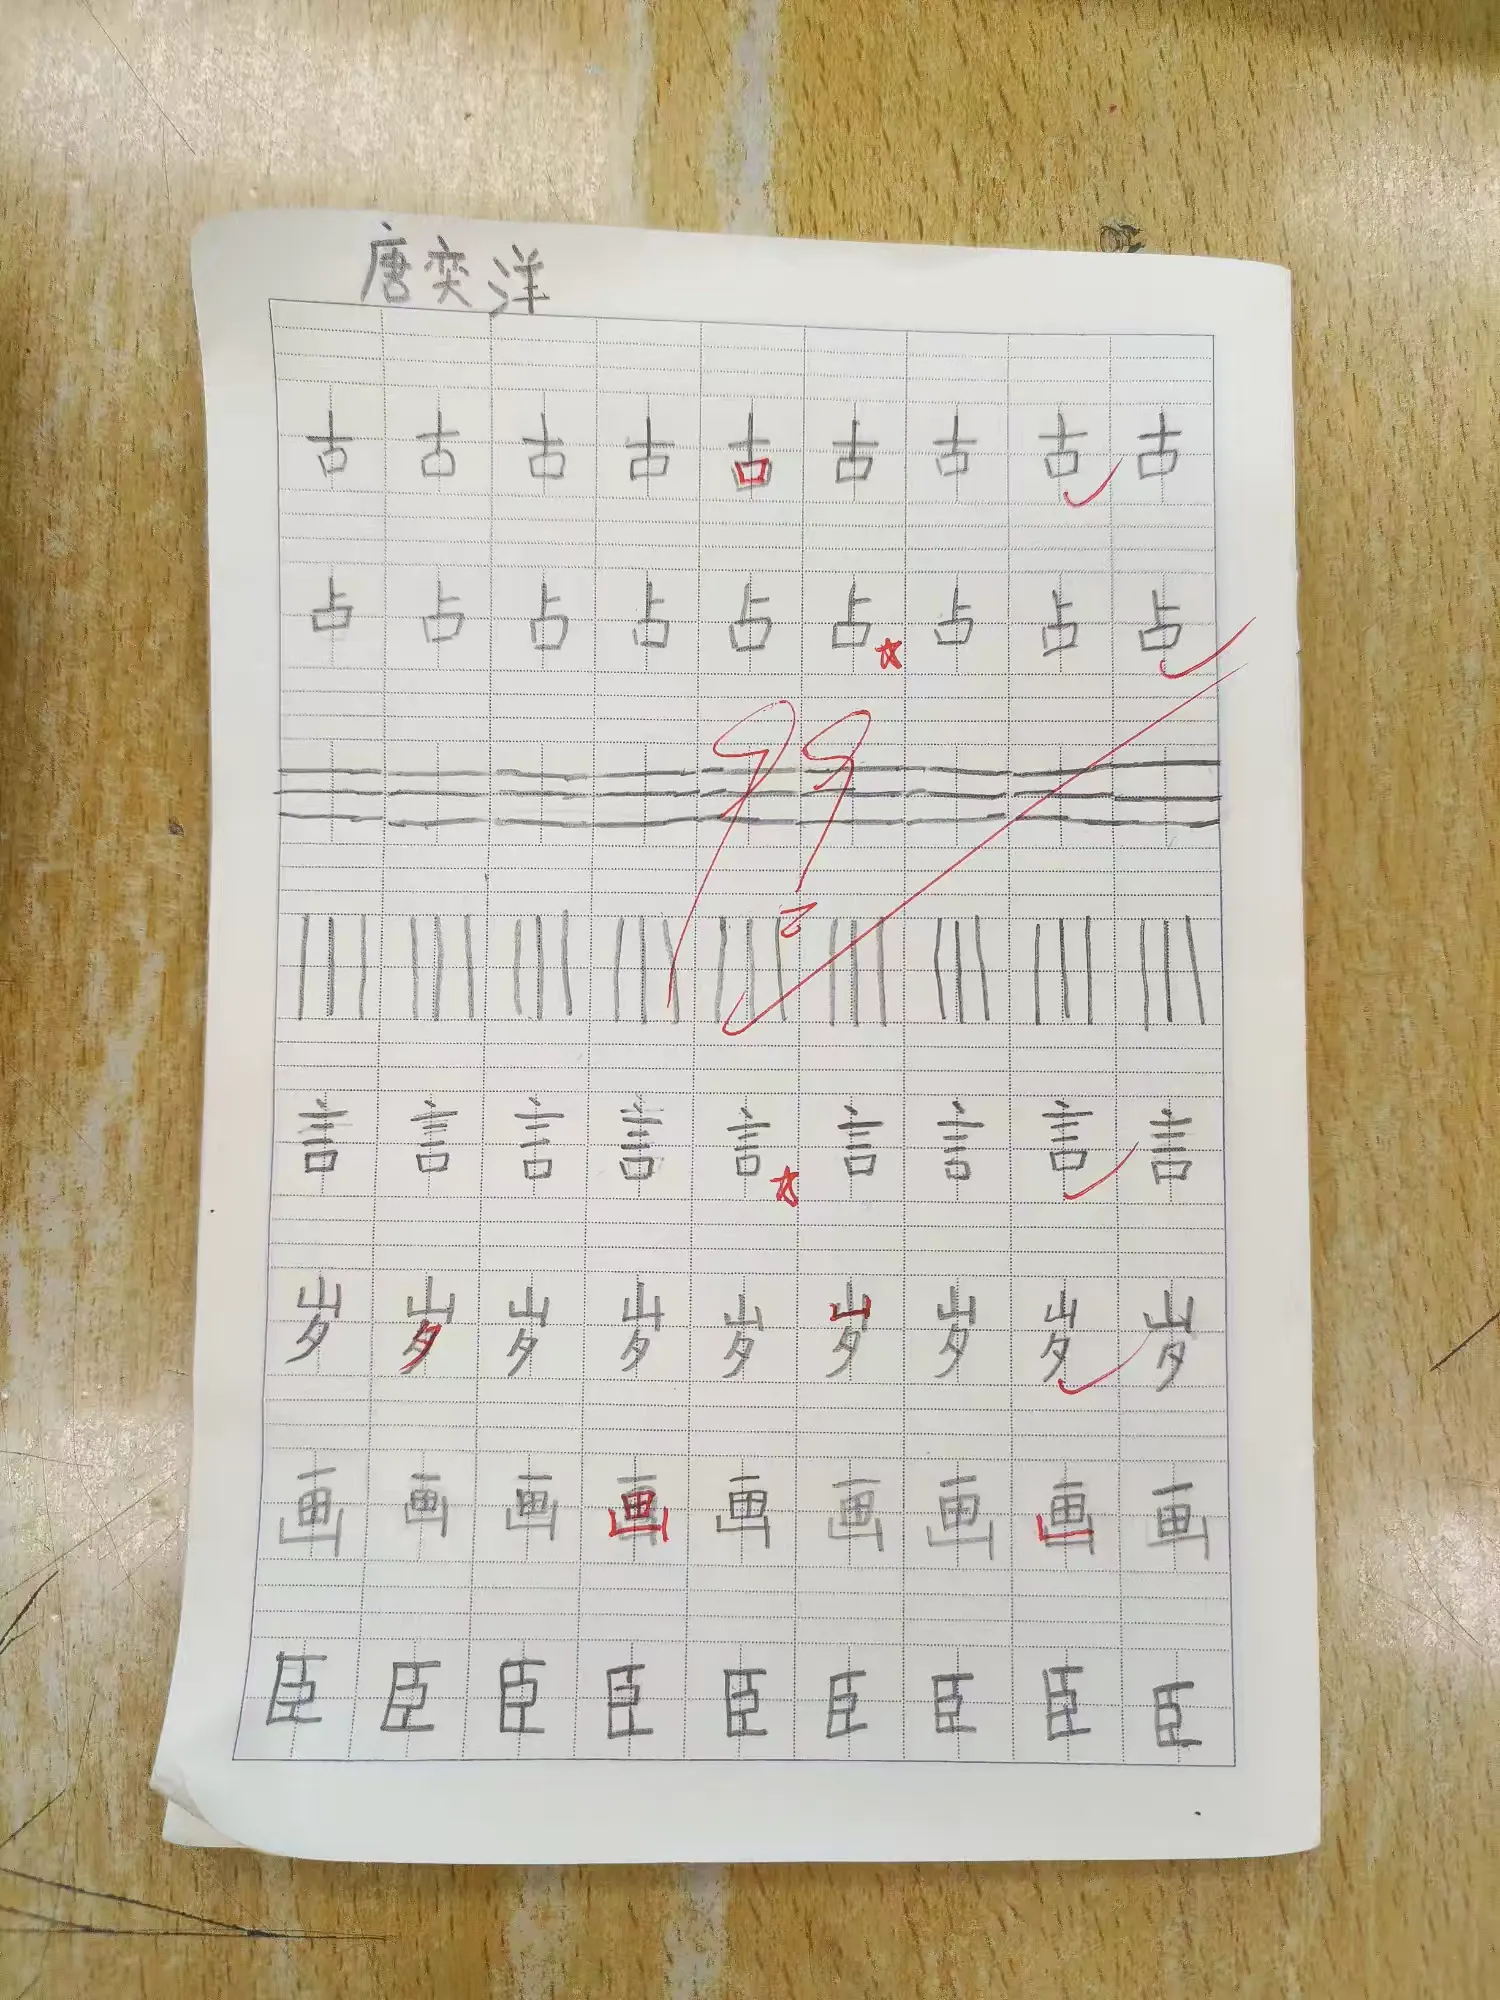 唐奕洋
古古古古古古古古古
占占占占占占占占占
99
言言言言言言言言言
岁岁岁岁岁岁岁岁岁
画画画画画画画画画
臣臣臣臣臣臣臣臣臣